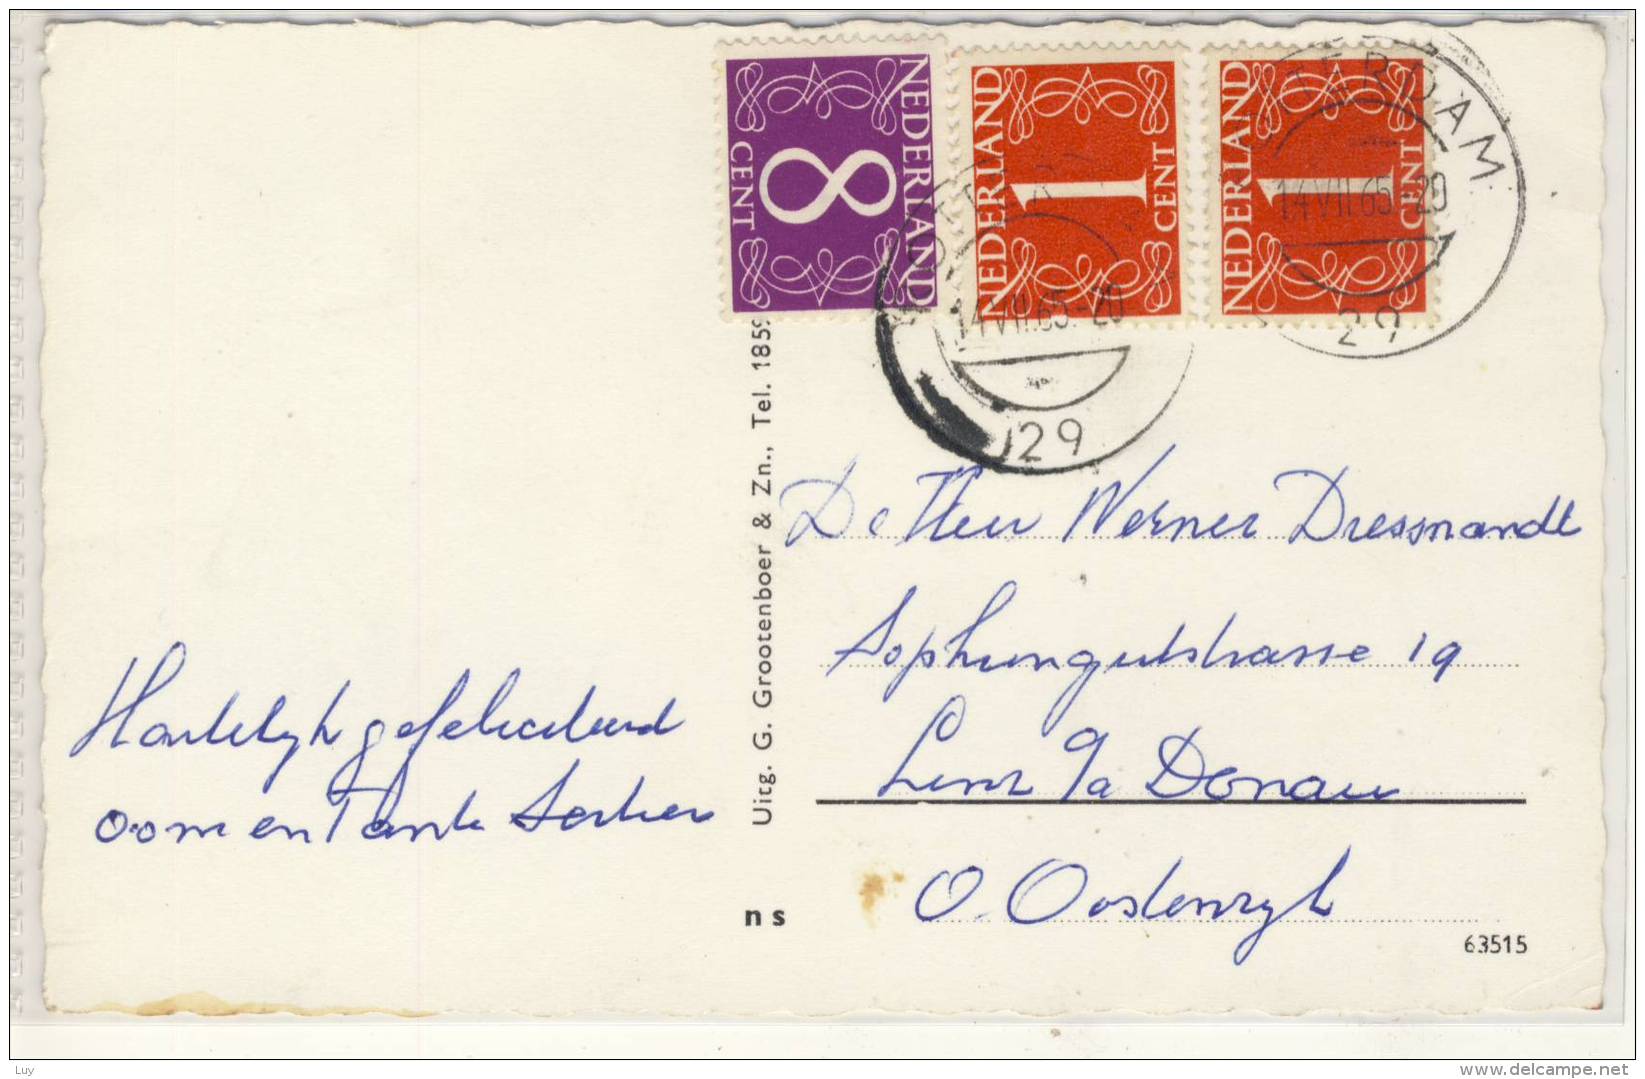 NEDERLAND
8
CENT
NEDERLAND
1
CENT
NEDERLAND
1
CENT
ROTTERDAM
14 VII 65.-20
29
ROTTERDAM
14 VII 65.-20
29
Uitg. G. Grootenboer & Zn., Tel. 1859
n s
Hartelijk gefeliciteerd
oom en Tante
De Heer Werner Dressnandt
19
Linz a/a Donau
O. Oostenryk
63515
Luy
www.delcampe.net